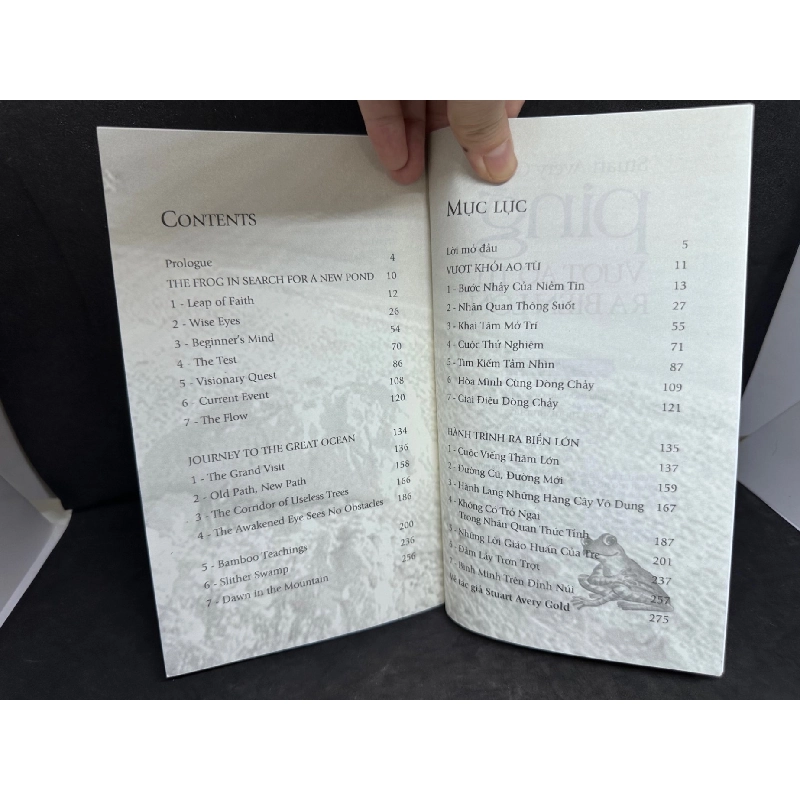 CONTENTS
Prologue 4
THE FROG IN SEARCH FOR A NEW POND 10
1 - Leap of Faith 12
2 - Wise Eyes 26
3 - Beginner's Mind 54
4 - The Test 70
5 - Visionary Quest 86
6 - Current Event 108
7 - The Flow 120
JOURNEY TO THE GREAT OCEAN 134
1 - The Grand Visit 136
2 - Old Path, New Path 158
3 - The Corridor of Useless Trees 166
4 - The Awakened Eye Sees No Obstacles 186
5 - Bamboo Teachings 200
6 - Slither Swamp 236
7 - Dawn in the Mountain 256
MỤC LỤC
Lời mở đầu 5
VƯỢT KHỎI AO TÙ 11
1 - Bước Nhảy Của Niềm Tin 13
2 - Nhãn Quan Thông Suốt 27
3 - Khai Tâm Mở Trí 55
4 - Cuộc Thử Nghiệm 71
5 - Tìm Kiếm Tầm Nhìn 87
6 - Hòa Mình Cùng Dòng Chảy 109
7 - Giai Điệu Dòng Chảy 121
HÀNH TRÌNH RA BIỂN LỚN 135
1 - Cuộc Viếng Thăm Lớn 137
2 - Đường Cũ, Đường Mới 159
3 - Hành Lang Những Hàng Cây Vô Dụng 167
4 - Không Có Trở Ngại
Trong Nhãn Quan Thức Tỉnh 187
5 - Những Lời Giáo Huấn Của Tre 201
6 - Đầm Lầy Trơn Trợt 237
7 - Bình Minh Trên Đỉnh Núi 257
tác giả Stuart Avery Gold 275
Stuart Avery
ping
VƯỢT A
RA BI